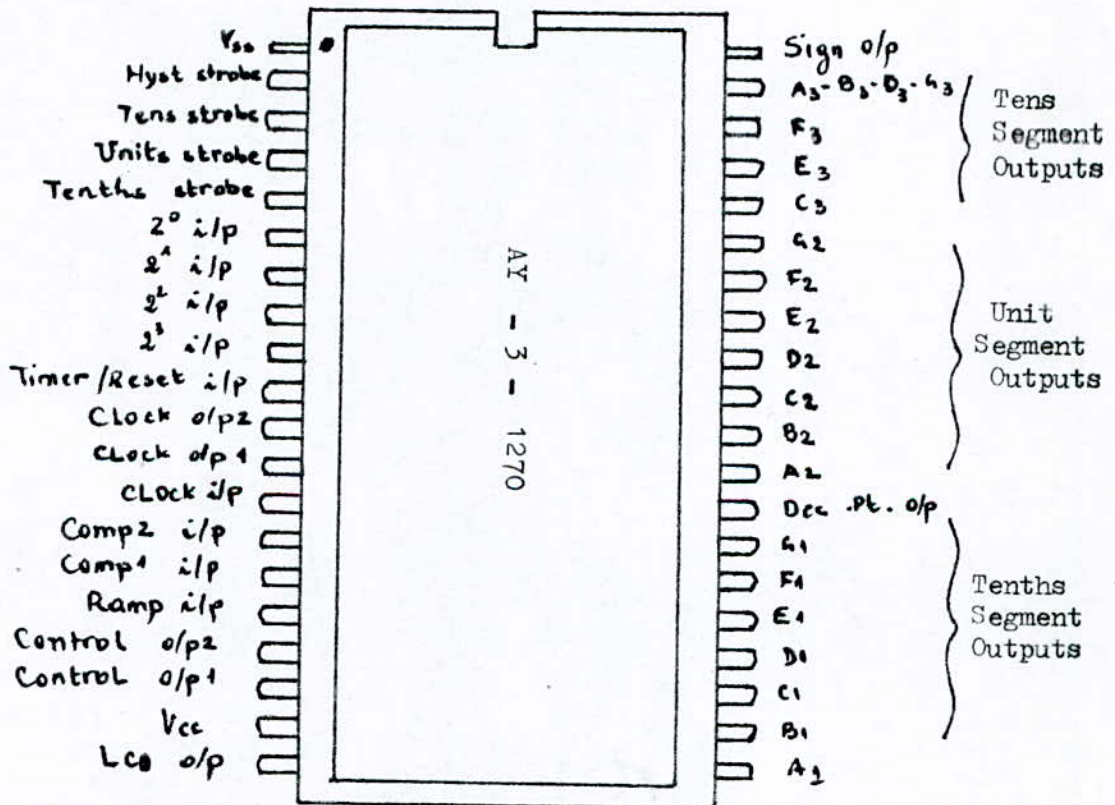 Vss
Hyst strobe
Tens strobe
Units strobe
Tenths strobe
2⁰ i/p
2¹ i/p
2² i/p
2³ i/p
Timer/Reset i/p
Clock o/p2
Clock o/p 1
Clock i/p
Comp2 i/p
Comp1 i/p
Ramp i/p
Control o/p2
Control o/p1
Vcc
LCD o/p
AY - 3 - 1270
Sign o/p
A3-B3-D3-G3
F3
E3
C3
G2
F2
E2
D2
C2
B2
A2
Dec .Pt. o/p
G1
F1
E1
D1
C1
B1
A1
Tens
Segment
Outputs
Unit
Segment
Outputs
Tenths
Segment
Outputs